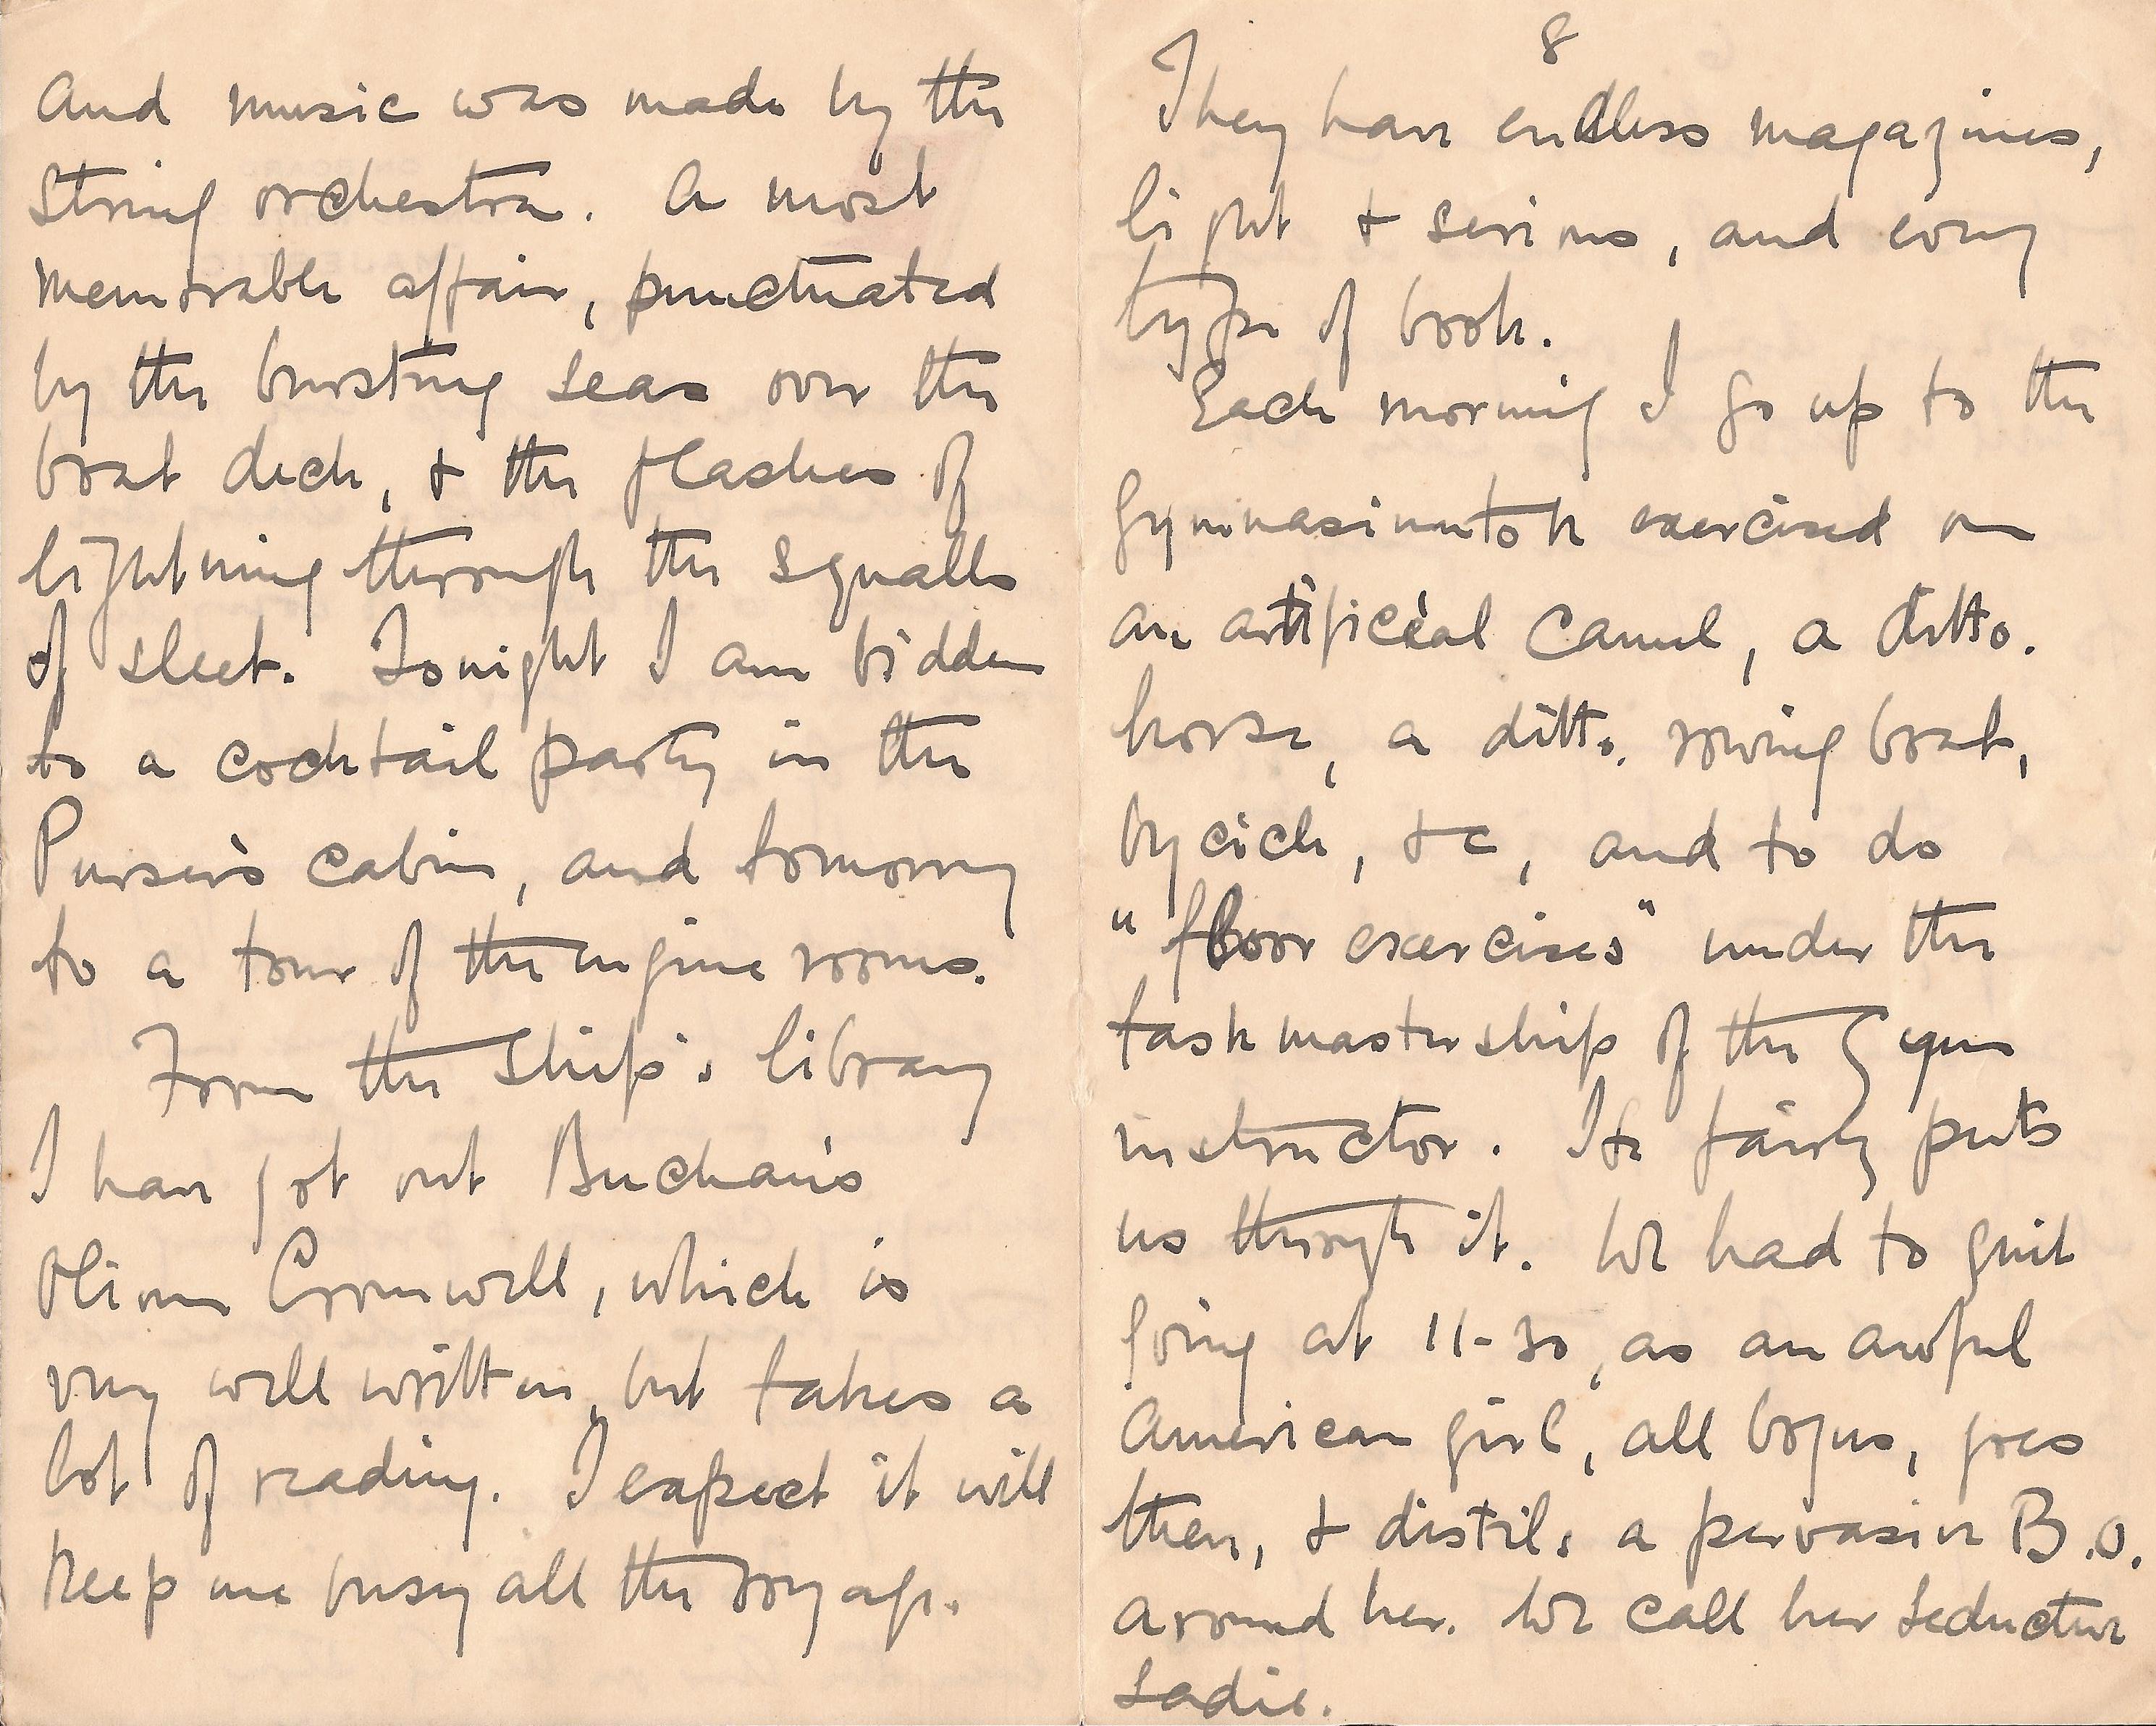 and music was made by the
string orchestra. A most
memorable affair, punctuated
by the bursting seas over the
boat deck, & the flashes of
lightning through the squalls
of sleet. Tonight I am bidden
to a cocktail party in the
Purser's cabin, and tomorrow
to a tour of the engine rooms.
From the ship's library
I have got out Buchan's
Oliver Cromwell, which is
very well written, but takes a
lot of reading. I expect it will
keep me busy all the voyage.
8
They have endless magazines,
light & serious, and every
type of book.
Each morning I go up to the
gymnasium to be exercised on
an artificial camel, a ditto.
horse, a ditto. rowing boat,
bycicle, &c, and to do
"floor exercises" under the
taskmastership of the gym
instructor. He fairly puts
us through it. We had to quit
going at 11-30, as an awful
American girl, all bogus, goes
then, & distils a pervasive B.O.
around her. We call her Seductive
Sadie.